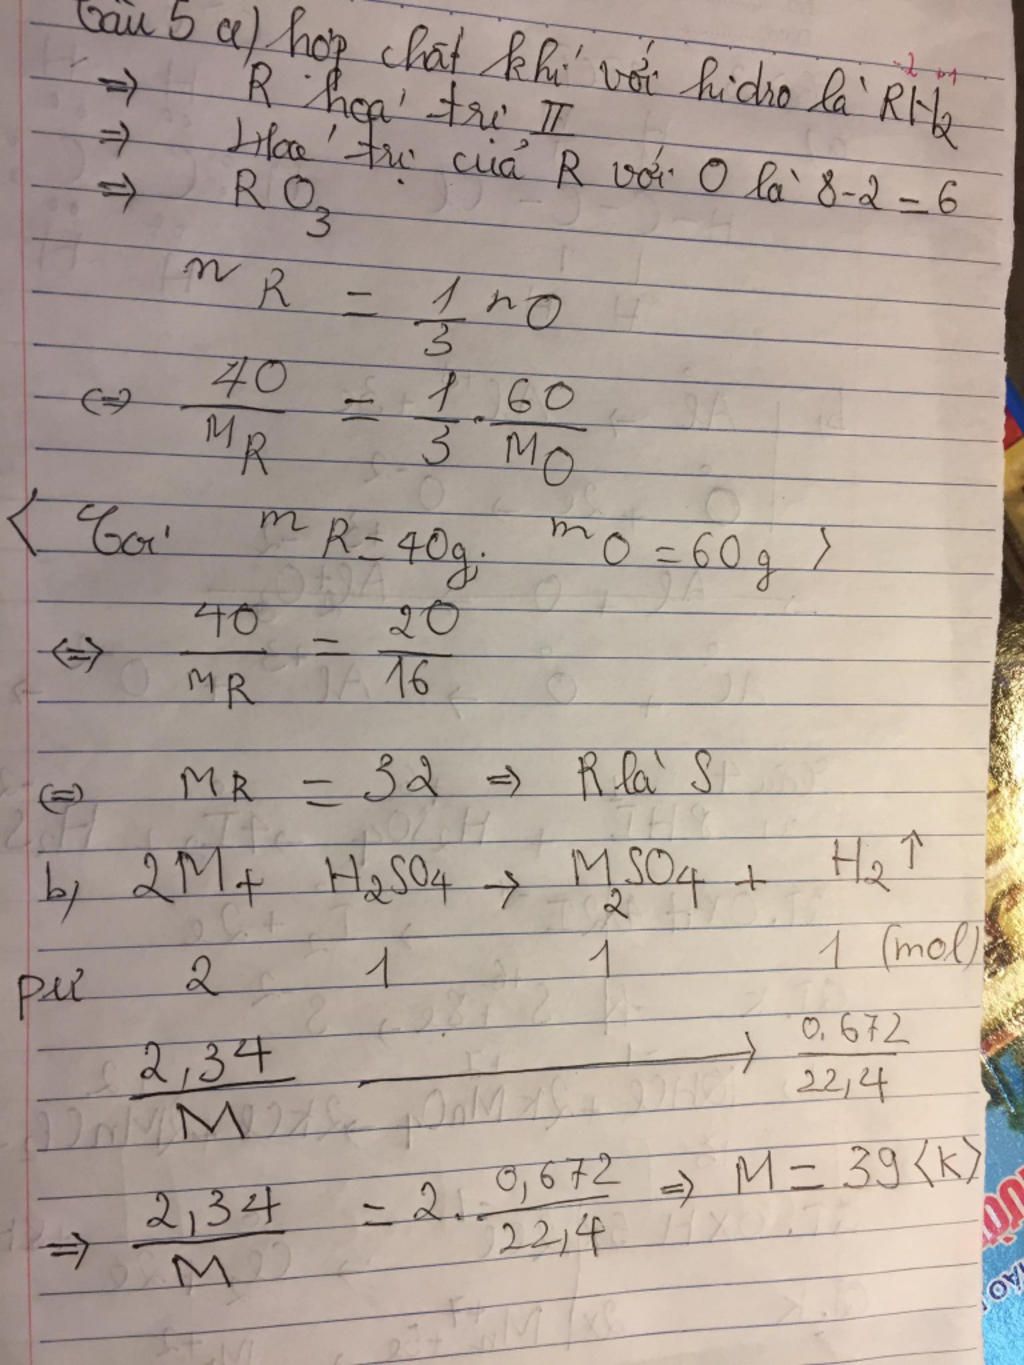 Câu 5 a) hợp chất khí với hidro là RH2
-2 +1
=> R hoá trị II
=> Hoá trị của R với O là 8-2=6
=> RO3
nR = 1/3 nO
<=> 40/MR = 1/3 . 60/MO
< Coi mR=40g; mO=60g >
<=> 40/MR = 20/16
<=> MR = 32 => R là S
b) 2M + H2SO4 → M2SO4 + H2↑
pư 2 1 1 1 (mol)
2,34/M → 0,672/22,4
=> 2,34/M = 2. 0,672/22,4 => M = 39 <K>